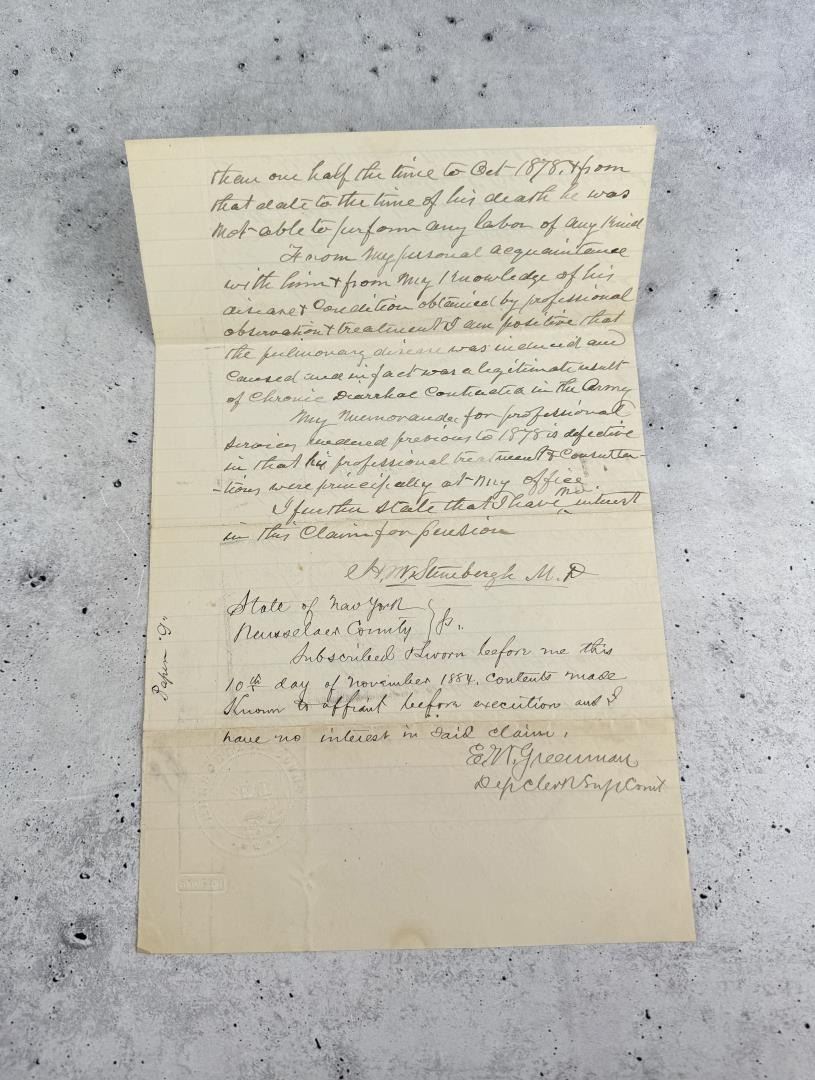 than one half the time to Oct 1878. & from
that date to the time of his death he was
not able to perform any labor of any kind
From my personal acquaintance
with him & from my knowledge of his
disease & condition obtained by professional
observation & treatment I am positive that
the pulmonary disease was induced and
caused and in fact was a legitimate result
of Chronic Diarrhae contracted in the Army
My Memoranda for professional
services rendered previous to 1878 is defective
in that his professional treatment & consulta-
-tions were principally at my office
I further state that I have no interest
in this claim for pension
H. W. Stinebergh M.D
State of New York
Rensselaer County } ss.
Subscribed & sworn before me this
10th day of November 1884. contents made
known to affiant before execution and I
have no interest in said claim.
E. W. Greenman
Dep Clerk Sup Court
Paper "G"